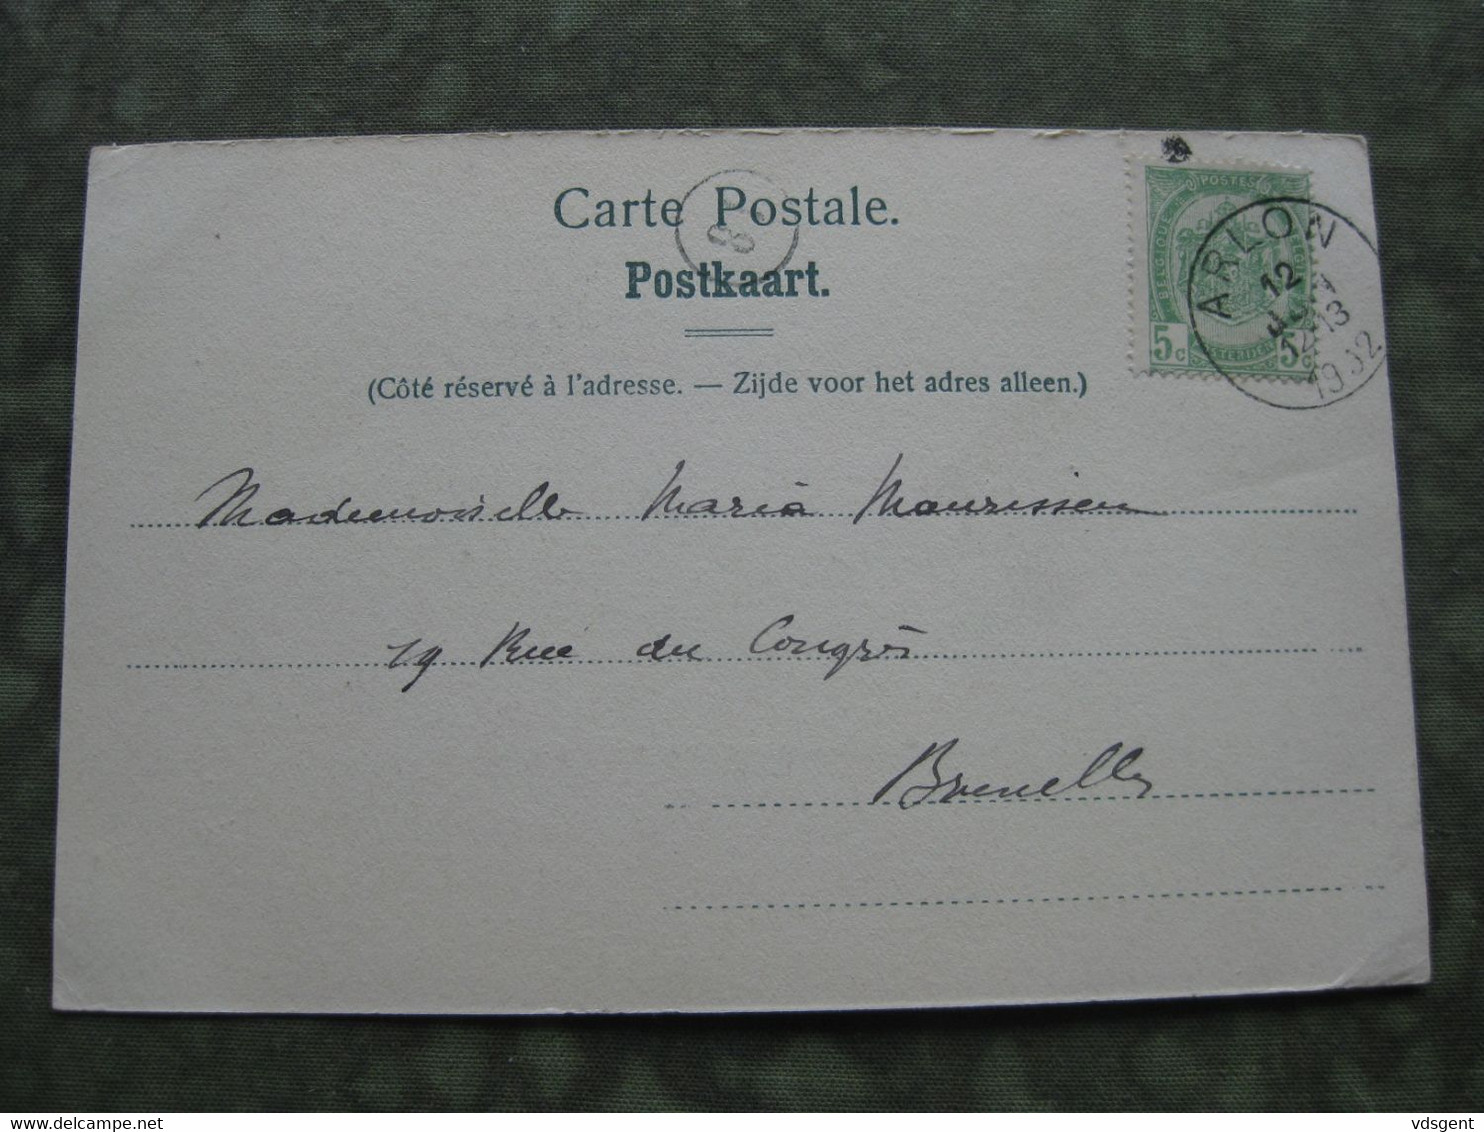 Carte Postale.
8
Postkaart.
(Côté réservé à l'adresse. — Zijde voor het adres alleen.)
POSTES
BELGIQUE
5 c
5 c
ARLON
12
12-13
1902
Mademoiselle Maria Maurissen
19 Rue du Congrès
Bruxelles
www.delcampe.net
vdsgent